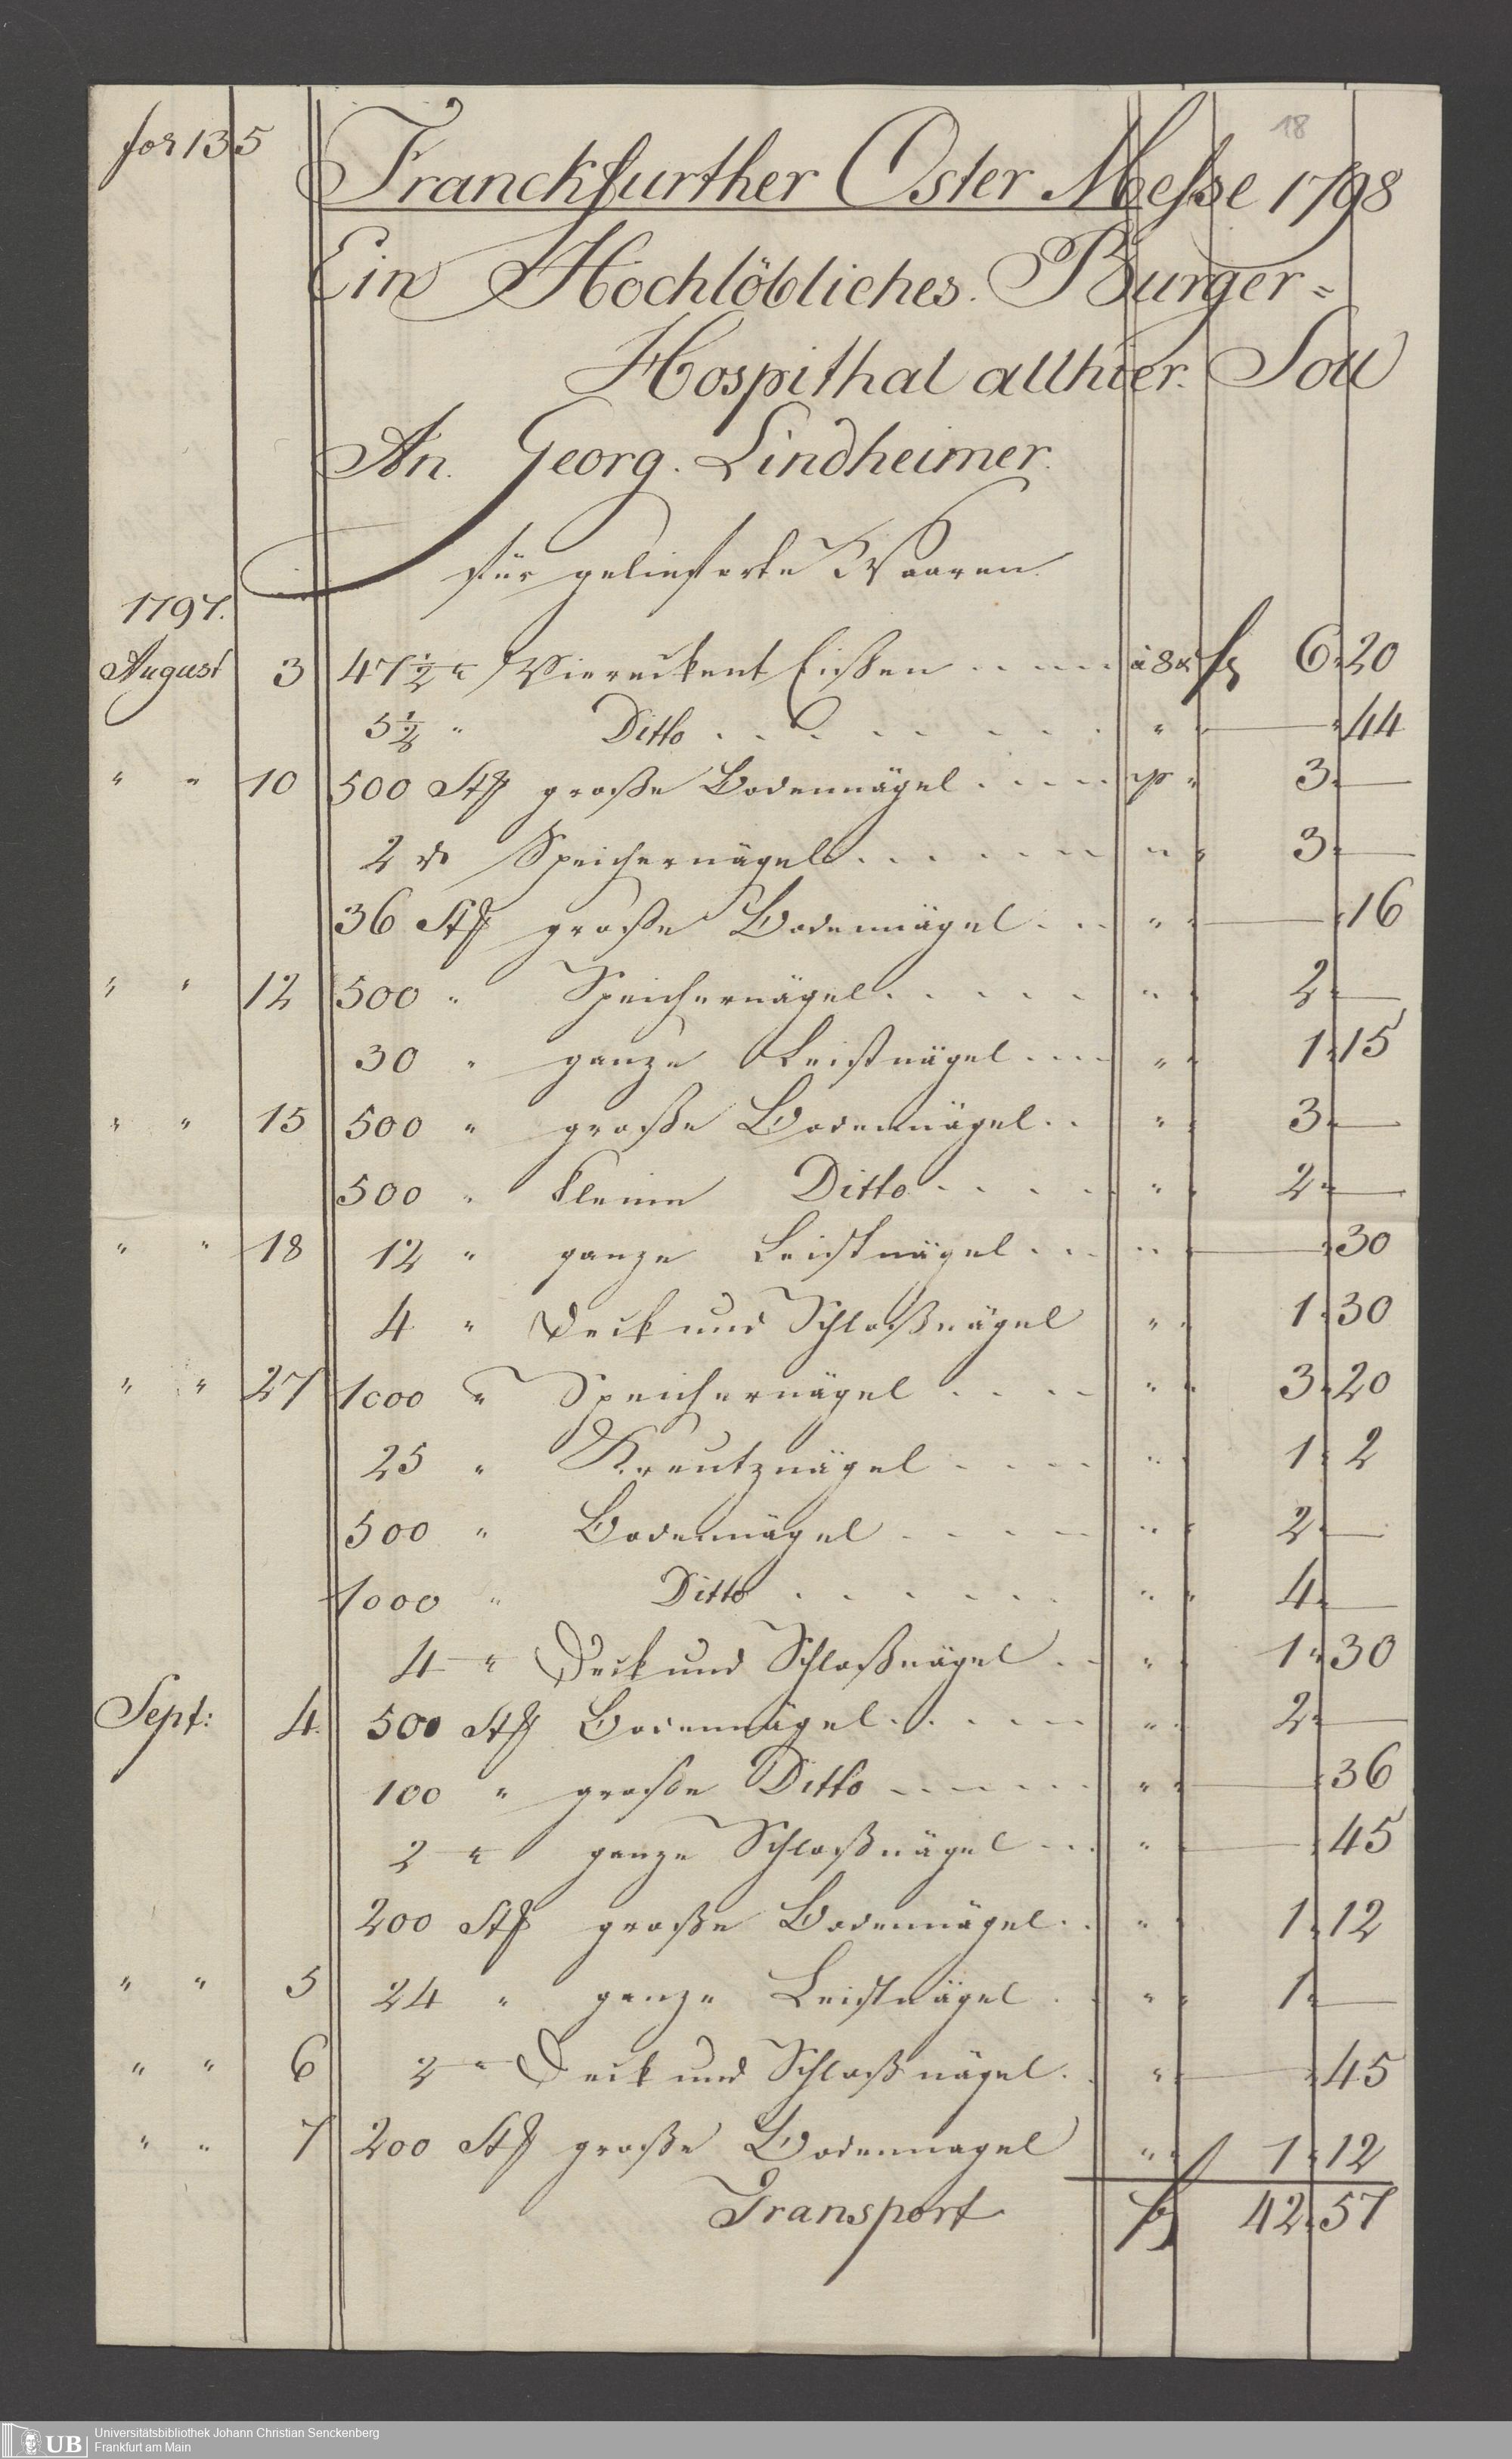 fol 135
18
Franckfurther Oster Messe 1798
Ein Hochlöbliches Burger=
Hospithal allhier. Soll
An. Georg. Lindheimer.
für gelieferte Waaren.
1797.
August 3 47 1/2 ℔ Viereckent Eißen .. .. .. à 8 x f 6 " 20
5 1/2 " Ditto . . . . . . . " " — " 44
" " 10 500 Stk große Bodennägel . . . . . pr " 3 " —
2 ℔ Speichernägel . . . . . . . " " 3 " —
36 Stk große Bodennägel . . . " " — " 16
" " 12 500 " Speichernägel . . . . . " " 2 " —
30 " ganze Leistnägel . . . . " " 1 " 15
" " 15 500 " große Bodennägel . . " " 3 " —
500 " kleine Ditto . . . . . " " 2 " —
" " 18 12 " ganze Leistnägel . . . " " — " 30
4 " Deck und Schloßnägel " " 1 " 30
" " 27 1000 " Speichernägel . . . . " " 3 " 20
25 " Kreutznägel . . . . " " 1 " 2
500 " Bodennägel . . . . " " 2 " —
1000 " Ditto . . . . . . " " 4 " —
4 " Deck und Schloßnägel . . " " 1 " 30
Sept: 4. 500 Stk Bodennägel . . . . . . " " 2 " —
100 " große Ditto . . . . . . " " — " 36
2 " ganze Schloßnägel . . . " " — " 45
200 Stk große Bodennägel . . " " 1 " 12
" " 5 24 " ganze Leistnägel . . " " 1 " —
" " 6 2 " Deck und Schloß nägel . . " " — " 45
" " 7 200 Stk große Bodennagel " " 1 " 12
Transport f 42 " 57
UB Universitätsbibliothek Johann Christian Senckenberg
Frankfurt am Main